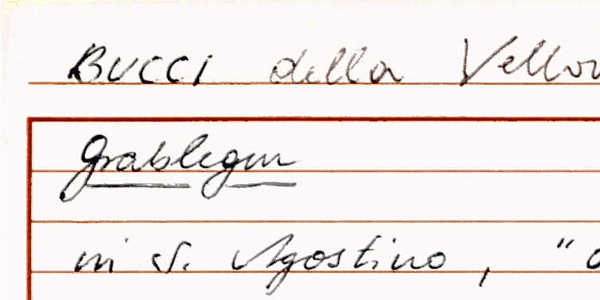 BUCCI della
Grablegen
in S. Agostino, "